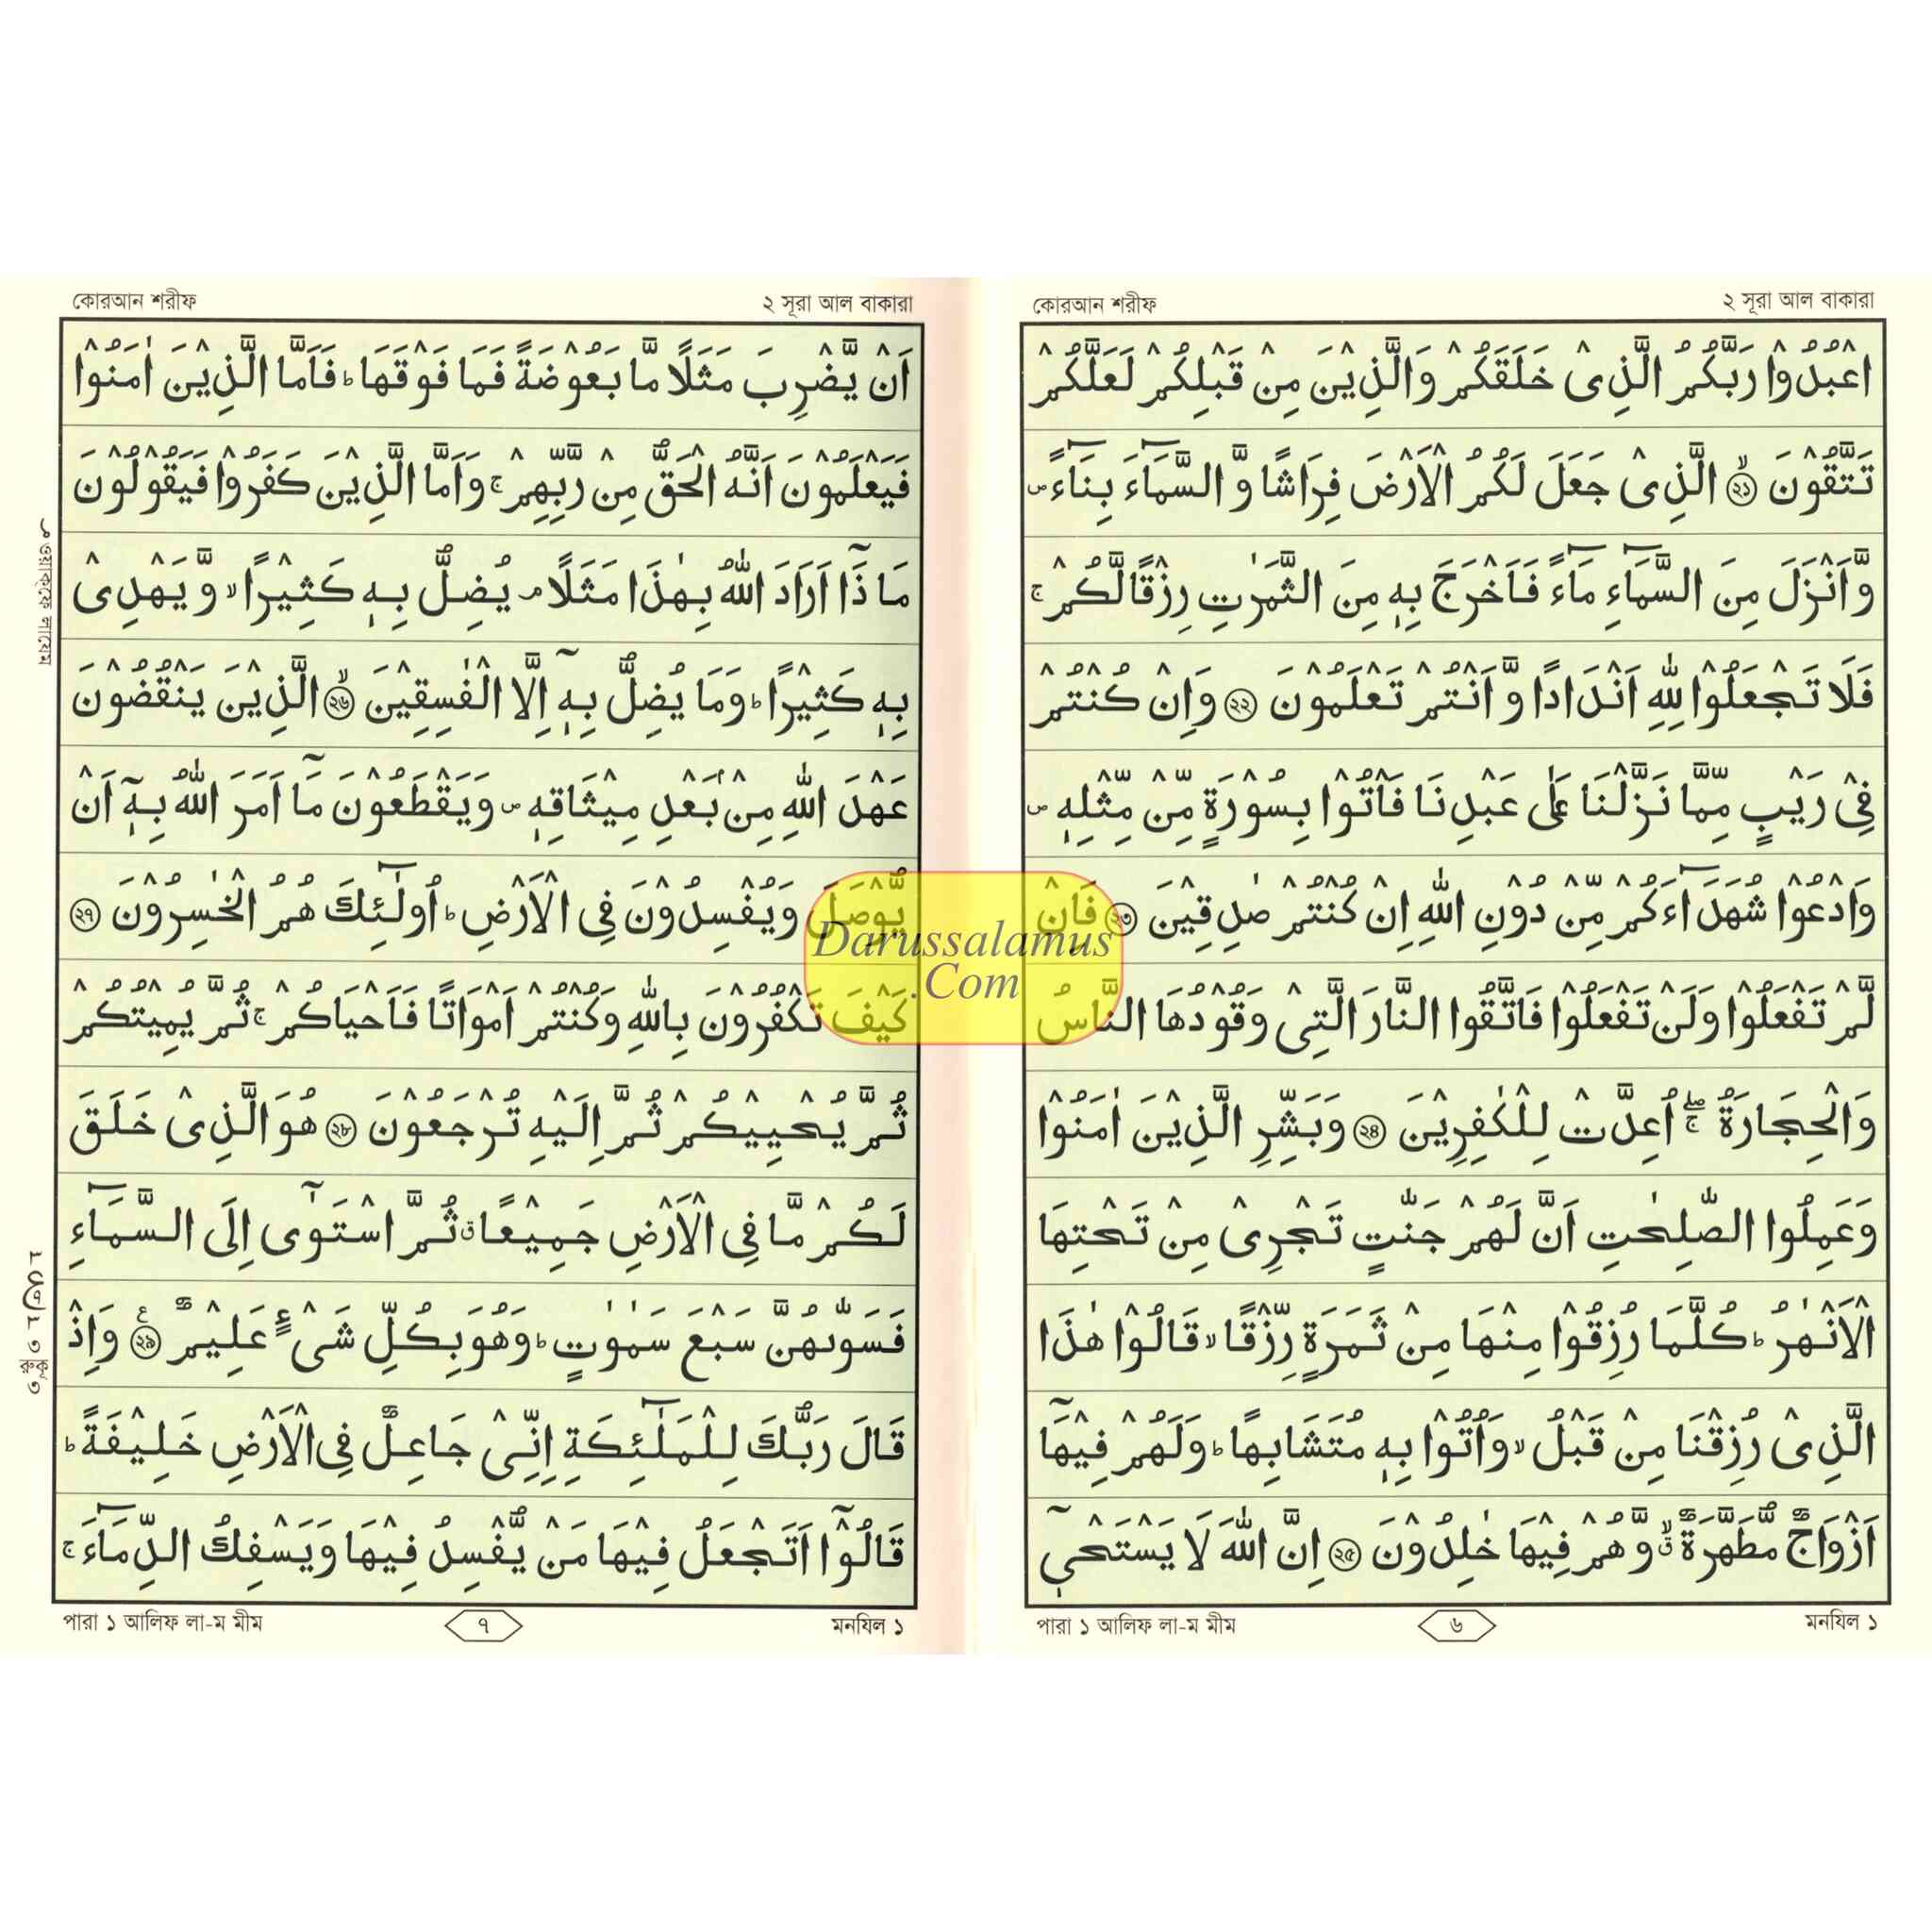 ২ সূরা আল বাকারা
কোরআন শরীফ
اعْبُدُوْا رَبَّكُمُ الَّذِىْ خَلَقَكُمْ وَالَّذِيْنَ مِنْ قَبْلِكُمْ لَعَلَّكُمْ
تَتَّقُوْنَ ۙ﴿২১﴾ الَّذِىْ جَعَلَ لَكُمُ الْاَرْضَ فِرَاشًا وَّ السَّمَآءَ بِنَآءً ۪
وَّاَنْزَلَ مِنَ السَّمَآءِ مَآءً فَاَخْرَجَ بِهٖ مِنَ الثَّمَرٰتِ رِزْقًا لَّكُمْ ۚ
فَلَا تَجْعَلُوْا لِلّٰهِ اَنْدَادًا وَّ اَنْتُمْ تَعْلَمُوْنَ ﴿২২﴾ وَاِنْ كُنْتُمْ
فِىْ رَيْبٍ مِّمَّا نَزَّلْنَا عَلٰى عَبْدِنَا فَاْتُوْا بِسُوْرَةٍ مِّنْ مِّثْلِهٖ ۪
وَادْعُوْا شُهَدَآءَكُمْ مِّنْ دُوْنِ اللّٰهِ اِنْ كُنْتُمْ صٰدِقِيْنَ ﴿২৩﴾ فَاِنْ
لَّمْ تَفْعَلُوْا وَلَنْ تَفْعَلُوْا فَاتَّقُوا النَّارَ الَّتِىْ وَقُوْدُهَا النَّاسُ
وَالْحِجَارَةُ ۖۚ اُعِدَّتْ لِلْكٰفِرِيْنَ ﴿২৪﴾ وَبَشِّرِ الَّذِيْنَ اٰمَنُوْا
وَعَمِلُوا الصّٰلِحٰتِ اَنَّ لَهُمْ جَنّٰتٍ تَجْرِىْ مِنْ تَحْتِهَا
الْاَنْهٰرُ ؕ كُلَّمَا رُزِقُوْا مِنْهَا مِنْ ثَمَرَةٍ رِّزْقًا ۙ قَالُوْا هٰذَا
الَّذِىْ رُزِقْنَا مِنْ قَبْلُ ۙ وَاُتُوْا بِهٖ مُتَشَابِهًا ؕ وَلَهُمْ فِيْهَاۤ
اَزْوَاجٌ مُّطَهَّرَةٌ ۙۗ وَّهُمْ فِيْهَا خٰلِدُوْنَ ﴿২৫﴾ اِنَّ اللّٰهَ لَا يَسْتَحْىٖۤ
মনযিল ১
৬
পারা ১ আলিফ লা-ম মীম
২ সূরা আল বাকারা
কোরআন শরীফ
اَنْ يَّضْرِبَ مَثَلًا مَّا بَعُوْضَةً فَمَا فَوْقَهَا ؕ فَاَمَّا الَّذِيْنَ اٰمَنُوْا
فَيَعْلَمُوْنَ اَنَّهُ الْحَقُّ مِنْ رَّبِّهِمْ ۚ وَاَمَّا الَّذِيْنَ كَفَرُوْا فَيَقُوْلُوْنَ
مَاذَاۤ اَرَادَ اللّٰهُ بِهٰذَا مَثَلًا ۘ يُضِلُّ بِهٖ كَثِيْرًا ۙ وَّيَهْدِىْ
بِهٖ كَثِيْرًا ؕ وَمَا يُضِلُّ بِهٖۤ اِلَّا الْفٰسِقِيْنَ ۙ﴿২৬﴾ الَّذِيْنَ يَنْقُضُوْنَ
عَهْدَ اللّٰهِ مِنْۢ بَعْدِ مِيْثَاقِهٖ ۪ وَيَقْطَعُوْنَ مَاۤ اَمَرَ اللّٰهُ بِهٖۤ اَنْ
يُّوْصَلَ وَيُفْسِدُوْنَ فِى الْاَرْضِ ؕ اُولٰٓئِكَ هُمُ الْخٰسِرُوْنَ ﴿২৭﴾
كَيْفَ تَكْفُرُوْنَ بِاللّٰهِ وَكُنْتُمْ اَمْوَاتًا فَاَحْيَاكُمْ ۚ ثُمَّ يُمِيْتُكُمْ
ثُمَّ يُحْيِيْكُمْ ثُمَّ اِلَيْهِ تُرْجَعُوْنَ ﴿২৮﴾ هُوَ الَّذِىْ خَلَقَ
لَكُمْ مَّا فِى الْاَرْضِ جَمِيْعًا ۗ ثُمَّ اسْتَوٰۤى اِلَى السَّمَآءِ
فَسَوّٰىهُنَّ سَبْعَ سَمٰوٰتٍ ؕ وَهُوَ بِكُلِّ شَىْءٍ عَلِيْمٌ ﴿২৯﴾ وَاِذْ
قَالَ رَبُّكَ لِلْمَلٰٓئِكَةِ اِنِّىْ جَاعِلٌ فِى الْاَرْضِ خَلِيْفَةً ؕ
قَالُوْۤا اَتَجْعَلُ فِيْهَا مَنْ يُّفْسِدُ فِيْهَا وَيَسْفِكُ الدِّمَآءَ ۚ
মনযিল ১
৭
পারা ১ আলিফ লা-ম মীম
ওয়াকফে লাযেম
রুকু ৩
Darussalamus
.Com